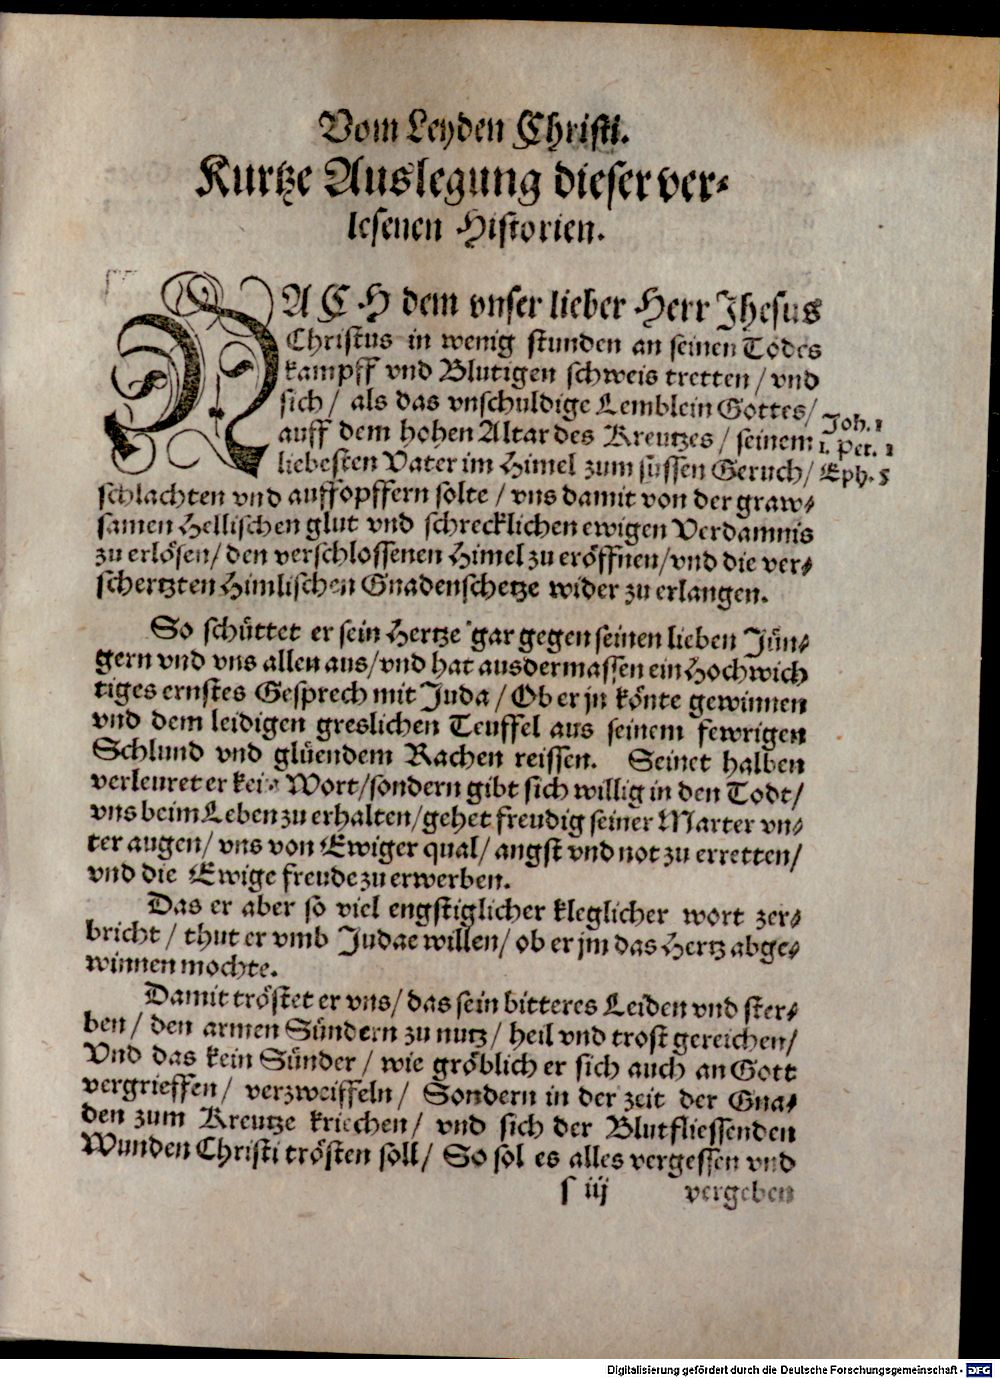 Vom Leyden Christi.
Kurtze Auslegung dieser ver⸗
lesenen Historien.
NACH dem vnser lieber Herr Jhesus
Christus in wenig stunden an seinen Todes
kampff vnd Blutigen schweis tretten / vnd
sich / als das vnschuldige Lemblein Gottes /
auff dem hohen Altar des Kreutzes / seinem
liebesten Vater im Himel zum süssen Geruch /
Joh. 1
1. Pet. 1
Eph. 5
schlachten vnd auffopffern solte / vns damit von der graw⸗
samen Hellischen glut vnd schrecklichen ewigen Verdamnis
zu erlösen / den verschlossenen Himel zu eröffnen / vnd die ver⸗
schertzten Himlischen Gnadenschetze wider zu erlangen.
So schüttet er sein Hertze gar gegen seinen lieben Jün⸗
gern vnd vns allen aus / vnd hat ausdermassen ein Hochwich
tiges ernstes Gesprech mit Juda / Ob er jn könte gewinnen
vnd dem leidigen greslichen Teuffel aus seinem fewrigen
Schlund vnd glüendem Rachen reissen. Seinet halben
verleuret er kein Wort / sondern gibt sich willig in den Todt /
vns beim Leben zu erhalten / gehet freudig seiner Marter vn⸗
ter augen / vns von Ewiger qual / angst vnd not zu erretten /
vnd die Ewige freude zu erwerben.
Das er aber so viel engstiglicher kleglicher wort zer⸗
bricht / thut er vmb Judae willen / ob er jm das Hertz abge⸗
winnen mochte.
Damit tröstet er vns / das sein bitteres Leiden vnd ster⸗
ben / den armen Sündern zu nutz / heil vnd trost gereichen /
Vnd das kein Sünder / wie gröblich er sich auch an Gott
vergrieffen / verzweiffeln / Sondern in der zeit der Gna⸗
den zum Kreutze kriechen / vnd sich der Blutfliessenden
Wunden Christi trösten soll / So sol es alles vergessen vnd
s iij vergeben
Digitalisierung gefördert durch die Deutsche Forschungsgemeinschaft - DFG